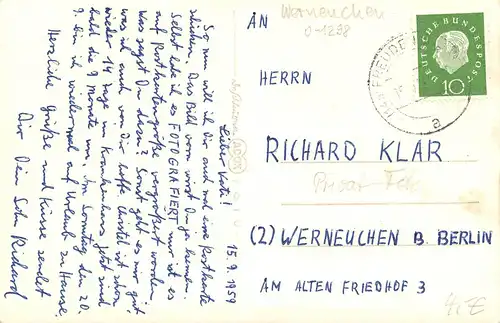 15.9.1959
Lieber Vati!
So nun will ich Dir auch mal eine Postkarte
schicken. Das Bild vorn wirst Du ja kennen.
Selbst habe ich es FOTOGRAFIERT nur ist es
auf Postkartengröße vergrößert worden.
Was sagst Du dazu? Sonst geht es mir gut
was ich auch von Dir hoffe. Ursel ist schon
wieder 14 Tage im Krankenhaus jetzt sind
bald die 9 Monate um. Am Sonntag den 20.
9. bin ich wiedermal auf Urlaub zu Hause.
Herzliche Grüße und Küsse sendet
Dir Dein Sohn Richard
AN
Werneuchen
O-1298
DEUTSCHE BUNDESPOST
10
FREUDE
a
HERRN
RICHARD KLAR
Privat-
(2) WERNEUCHEN B. BERLIN
AM ALTEN FRIEDHOF 3
4,-E